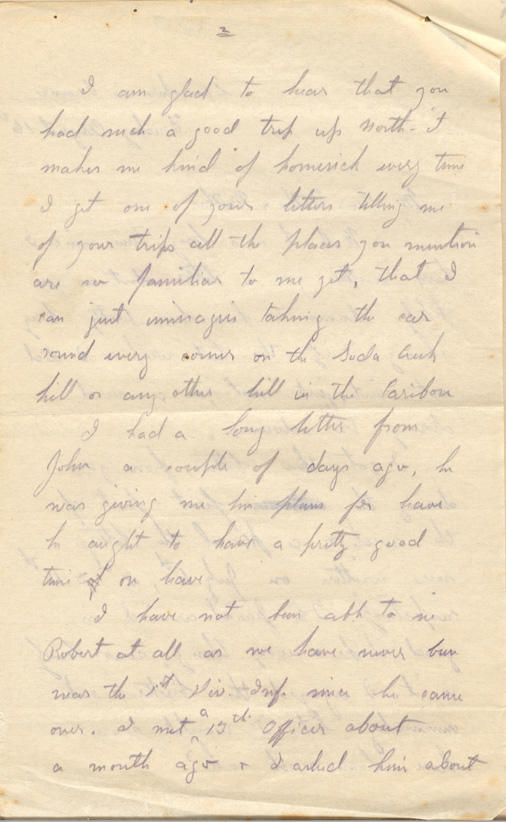 2
I am glad to hear that you
had such a good trip up North. It
makes me kind of homesick every time
I get one of your letters telling me
of your trips all the places you mention
are so familiar to me yet, that I
can just immagin taking the car
round every corner on the Soda Creek
hill or any other hill in the Cariboo
I had a long letter from
John a couple of days ago, he
was giving me his plans for leave
he aught to have a pretty good
time on leave
I have not been able to see
Robert at all as we have never been
near the 1st Div. Inf. since he came
over. I met a 15th Officer about
a month ago & I asked him about